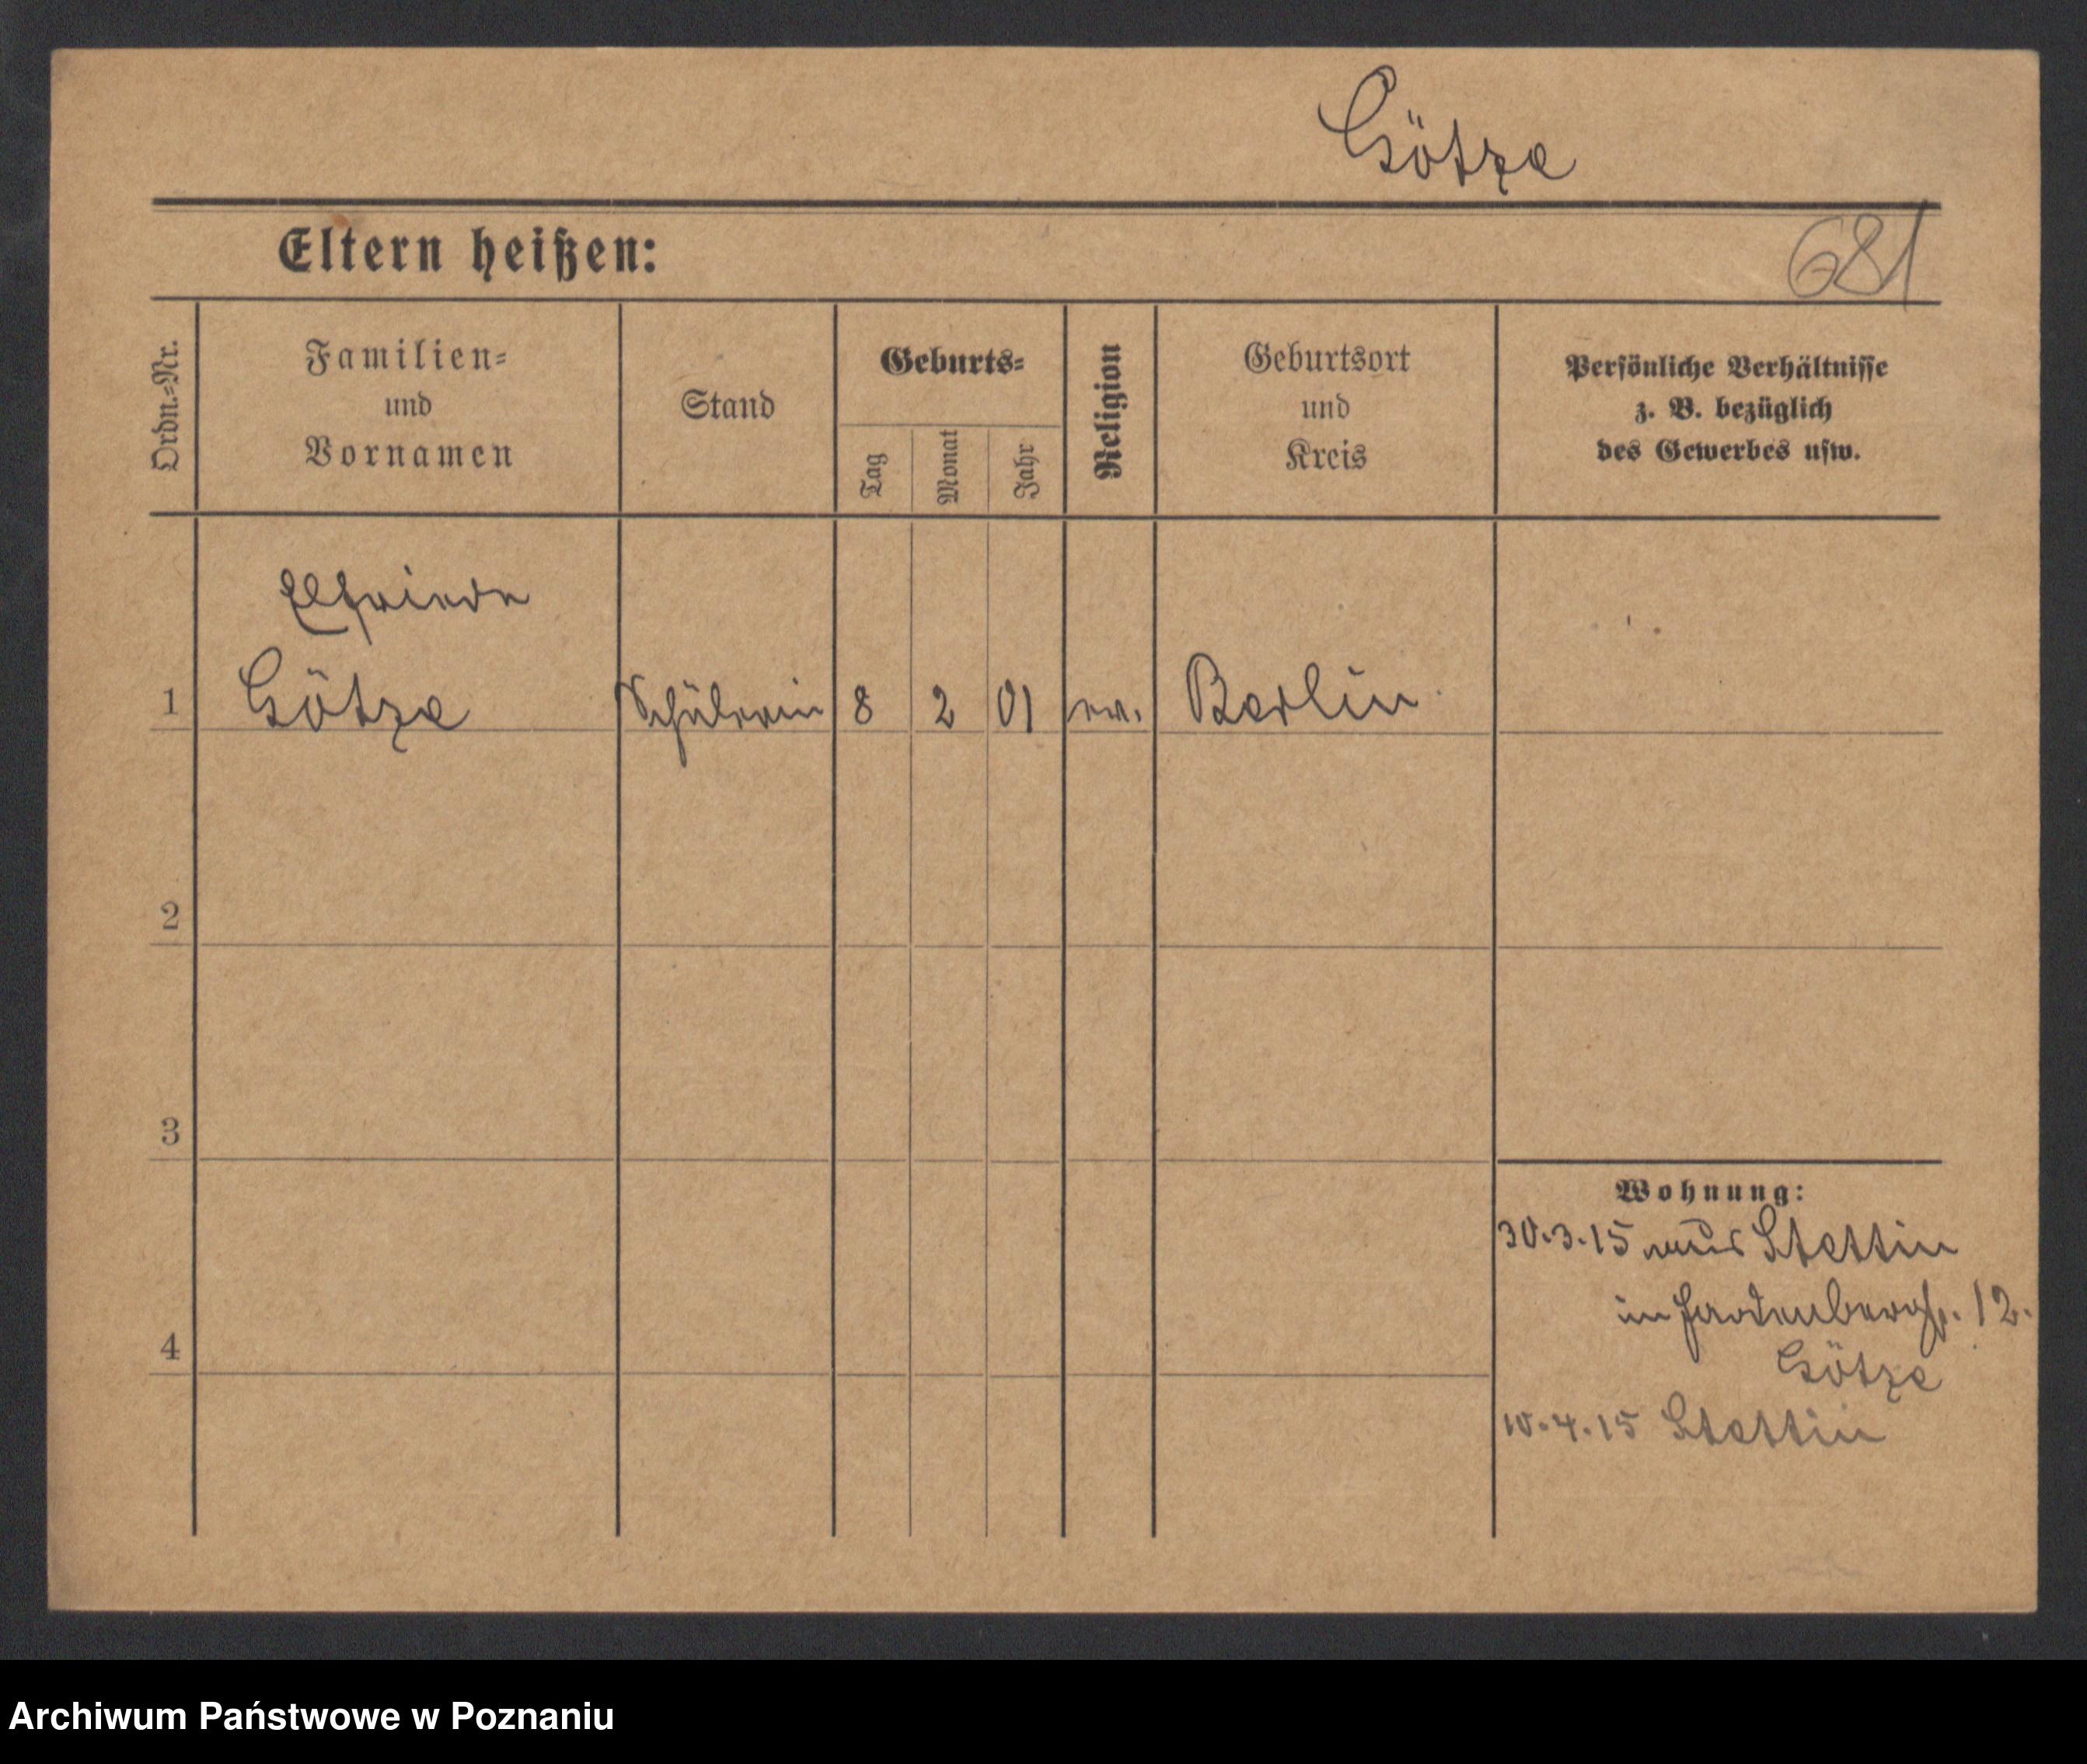 Götze
Eltern heißen:
681
Ordn.-Nr.
Familien-
und
Vornamen
Stand
Geburts-
Tag
Monat
Jahr
Religion
Geburtsort
und
Kreis
Persönliche Verhältnisse
z. B. bezüglich
des Gewerbes usw.
Elfriede
1 Götze Schülerin 8 2 01 ev. Berlin
2
3
4
Wohnung:
30.3.15 aus Stettin
in Hardenbergstr. 12.
Götze
10.4.15 Stettin
Archiwum Państwowe w Poznaniu